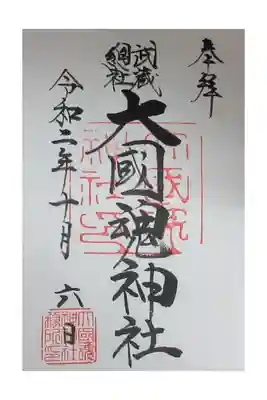 奉拝
武蔵
總社
大國魂神社
令和二年十月
六日